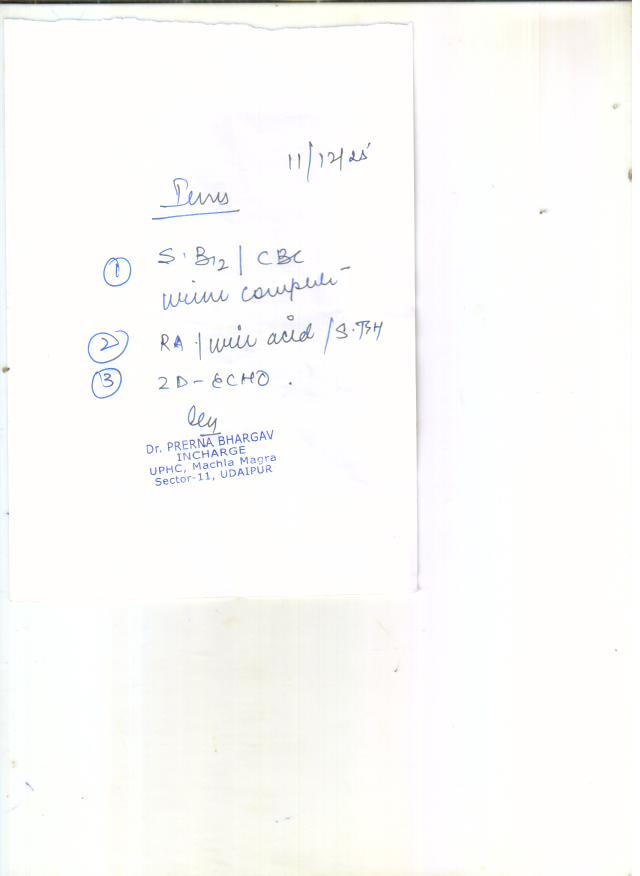 11/12/25
① S.B12 / CBC
urine complete
② RA / uric acid / S.TSH
③ 2D-ECHO.
Dr. PRERNA BHARGAV
INCHARGE
UPHC, Machla Magra
Sector-11, UDAIPUR